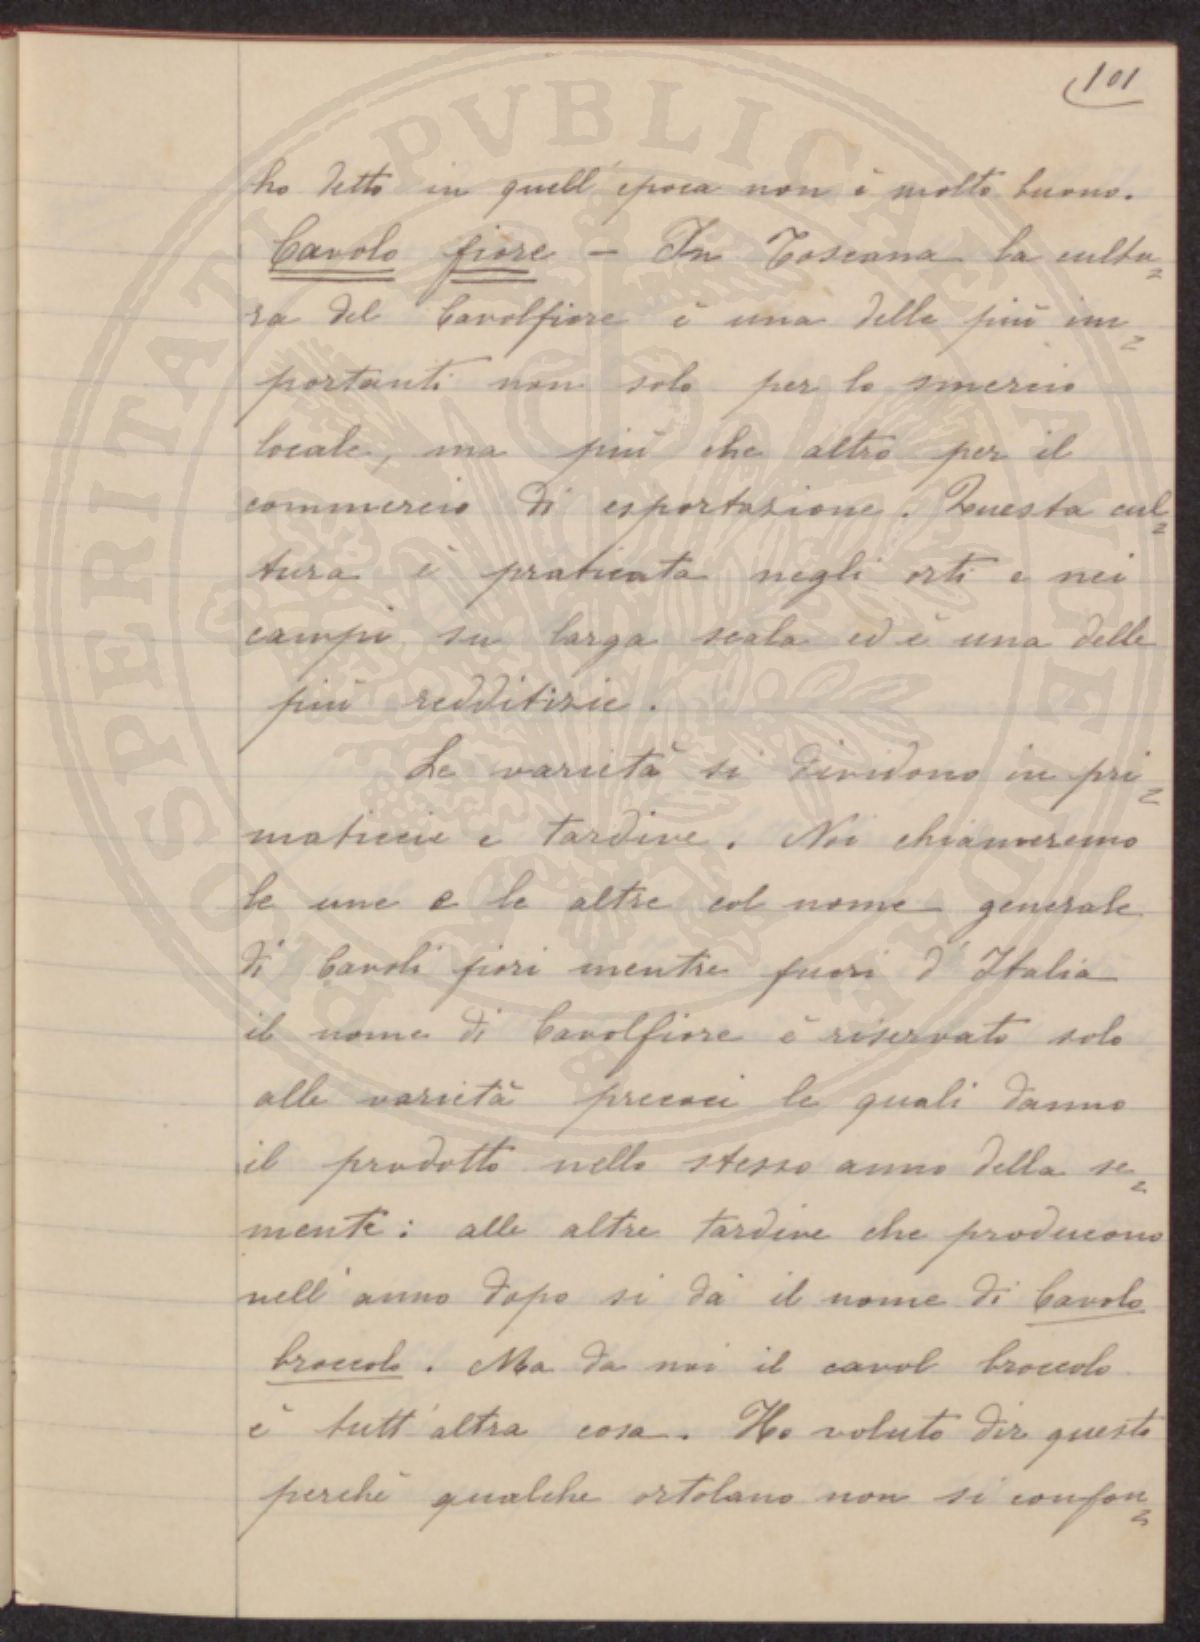 101
ho detto in quell'epoca non è molto buono.
Cavolo fiore – In Toscana la cultu=
ra del Cavolfiore è una delle più im=
portanti non solo per lo smercio
locale, ma più che altro per il
commercio di esportazione. Questa cul=
tura è praticata negli orti e nei
campi su larga scala ed è una delle
più redditizie.
Le varietà si dividono in pri=
maticcie e tardive. Noi chiameremo
le une e le altre col nome generale
di Cavoli fiori mentre fuori d'Italia
il nome di Cavolfiore è riservato solo
alle varietà precoci le quali danno
il prodotto nello stesso anno della se=
mente: alle altre tardive che producono
nell'anno dopo si dà il nome di Cavolo
broccolo. Ma da noi il cavol broccolo
è tutt'altra cosa. Ho voluto dir questo
perchè qualche ortolano non si confon=
PROSPERITATI PVBLICAE AVGENDAE